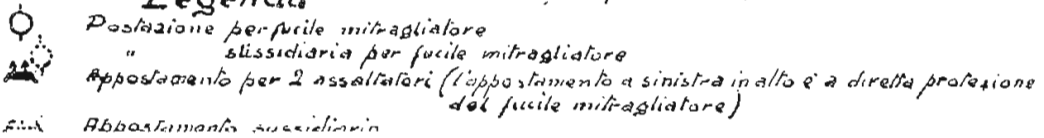 Legenda
Postazione per fucile mitragliatore
" sussidiaria per fucile mitragliatore
Appostamento per 2 assaltatori (l'appostamento a sinistra in alto è a diretta protezione
del fucile mitragliatore)
Appostamento sussidiario